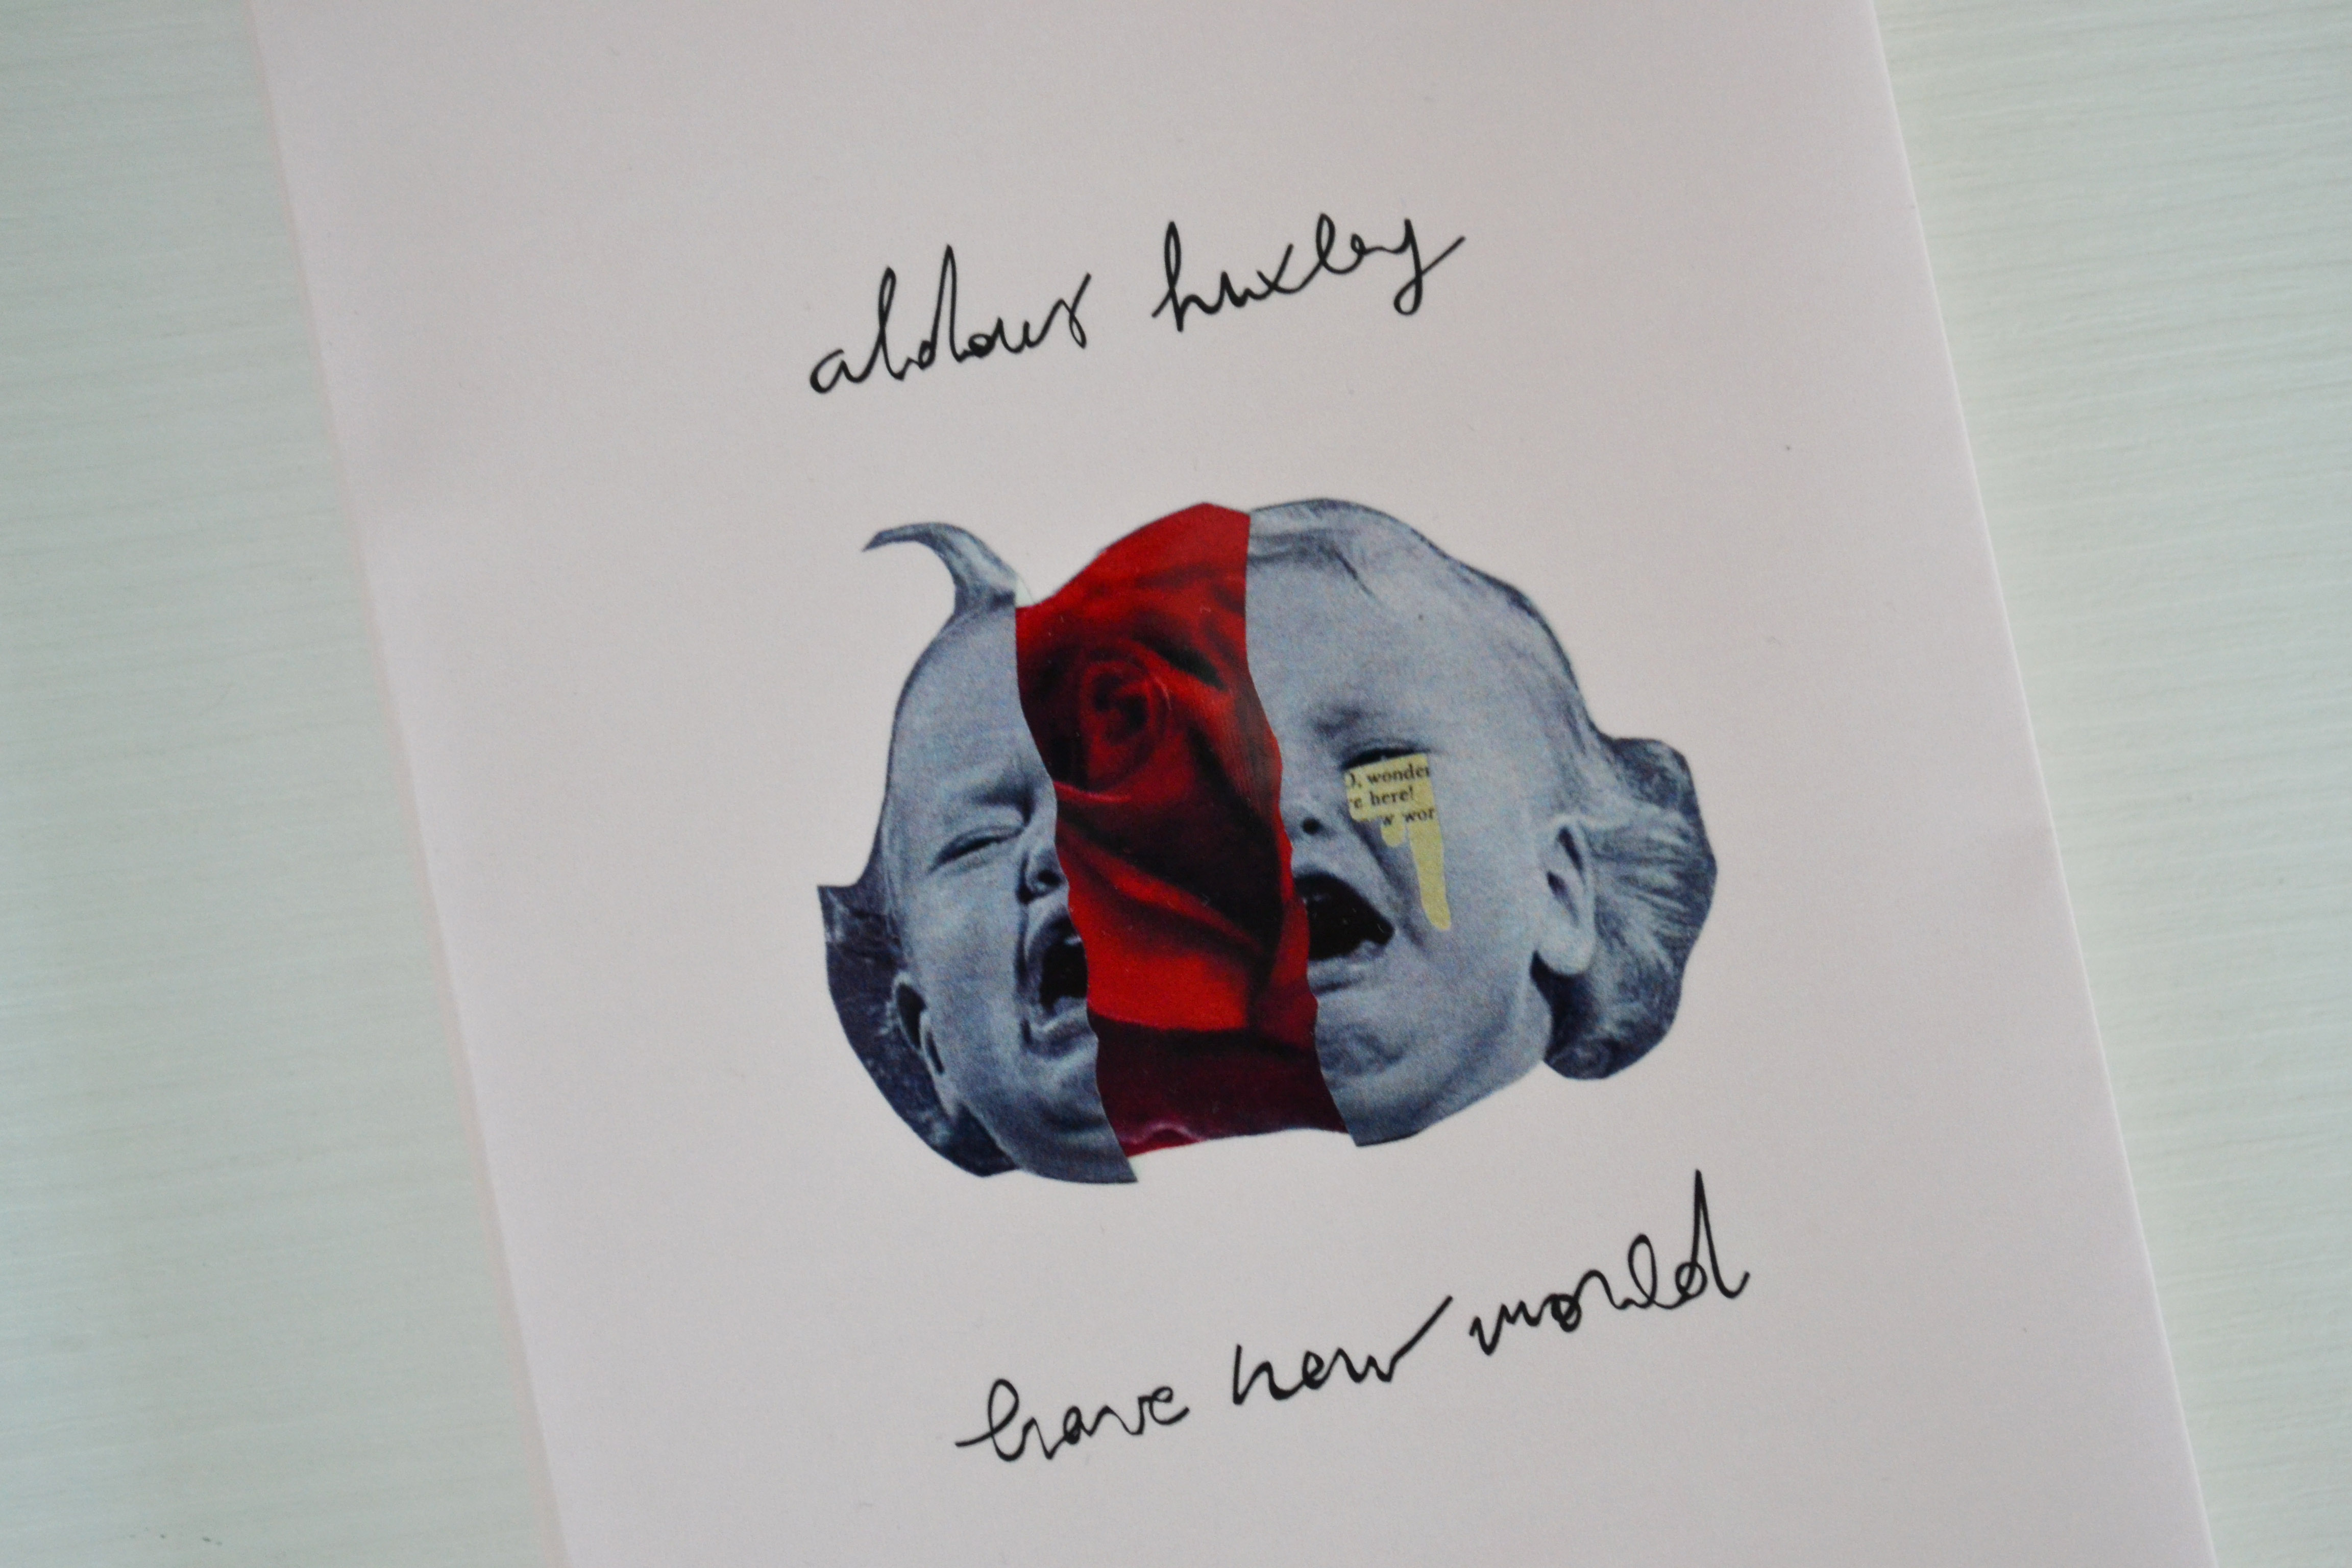 aldous huxley
O, wonder
re here!
w wor
brave new world